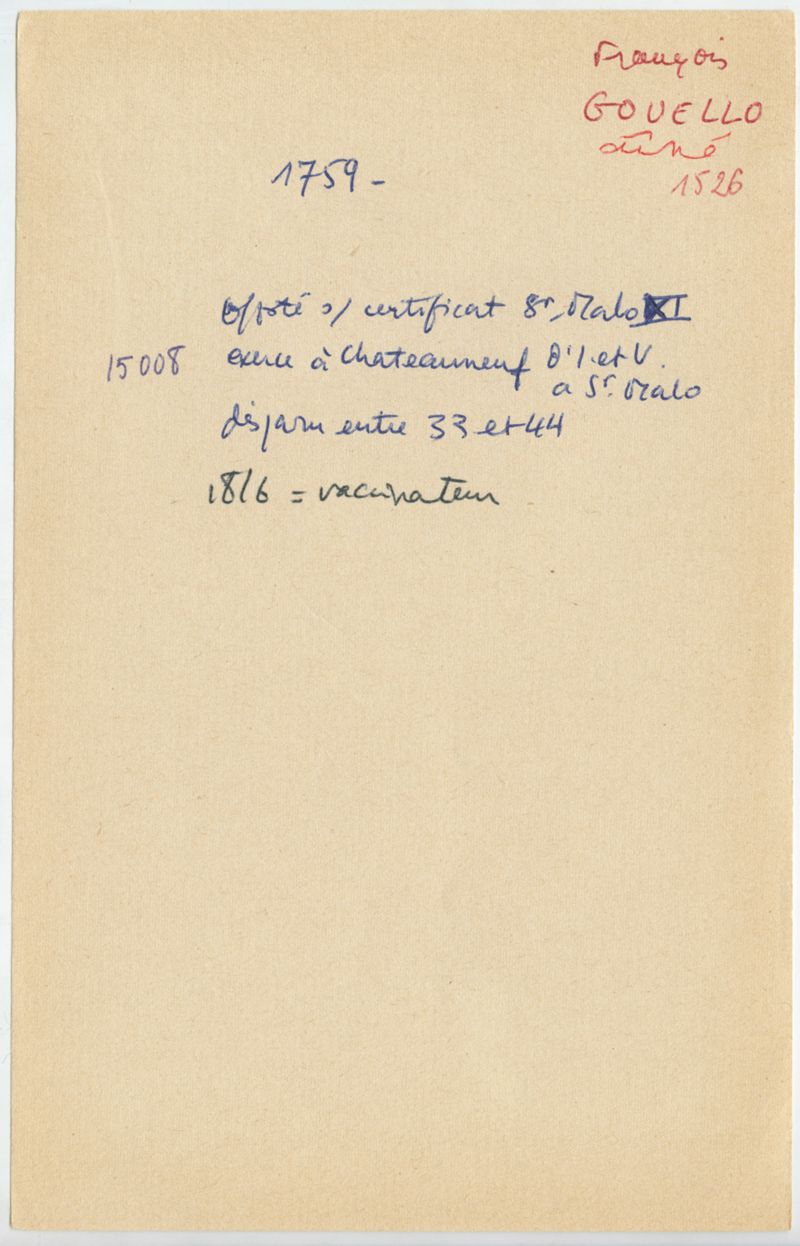 François
GOUELLO
aîné
1526
1759 -
s/ certificat St. Malo XI
15008 exerce à Chateauneuf d'I. et V.
a St. Malo
disparu entre 33 et 44
1816 = vaccinateur